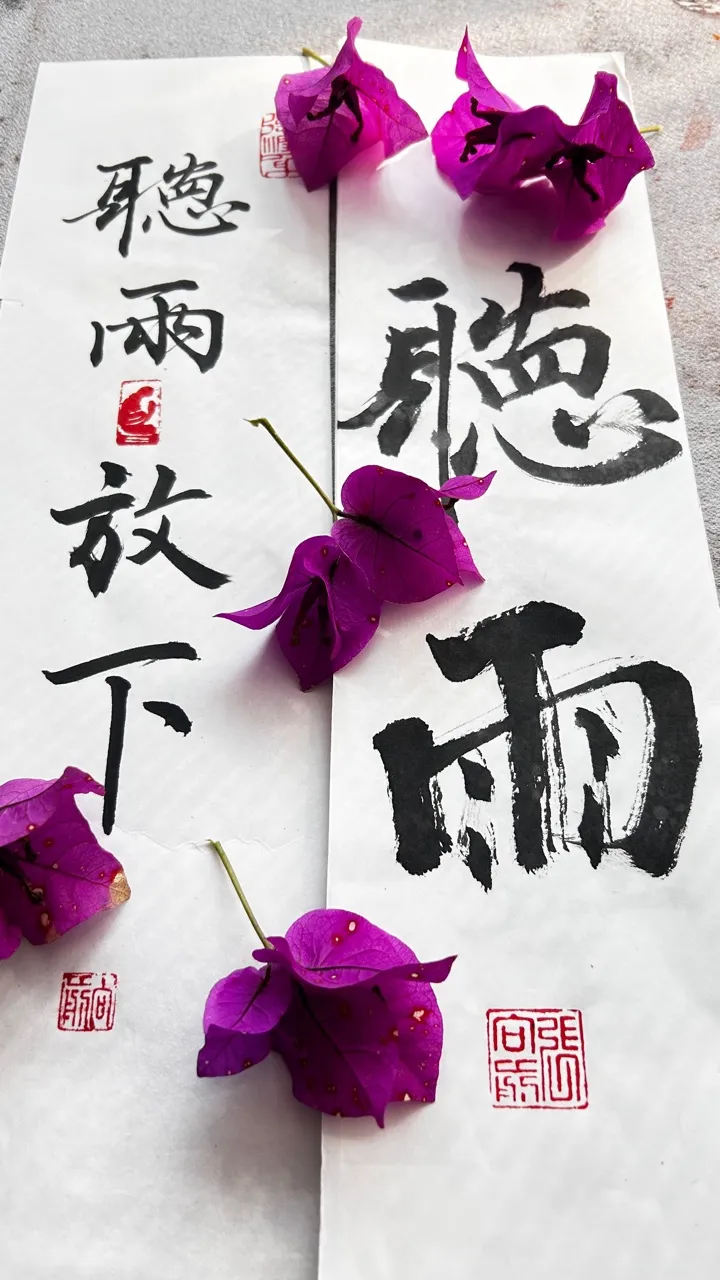 聽雨
聽雨放下